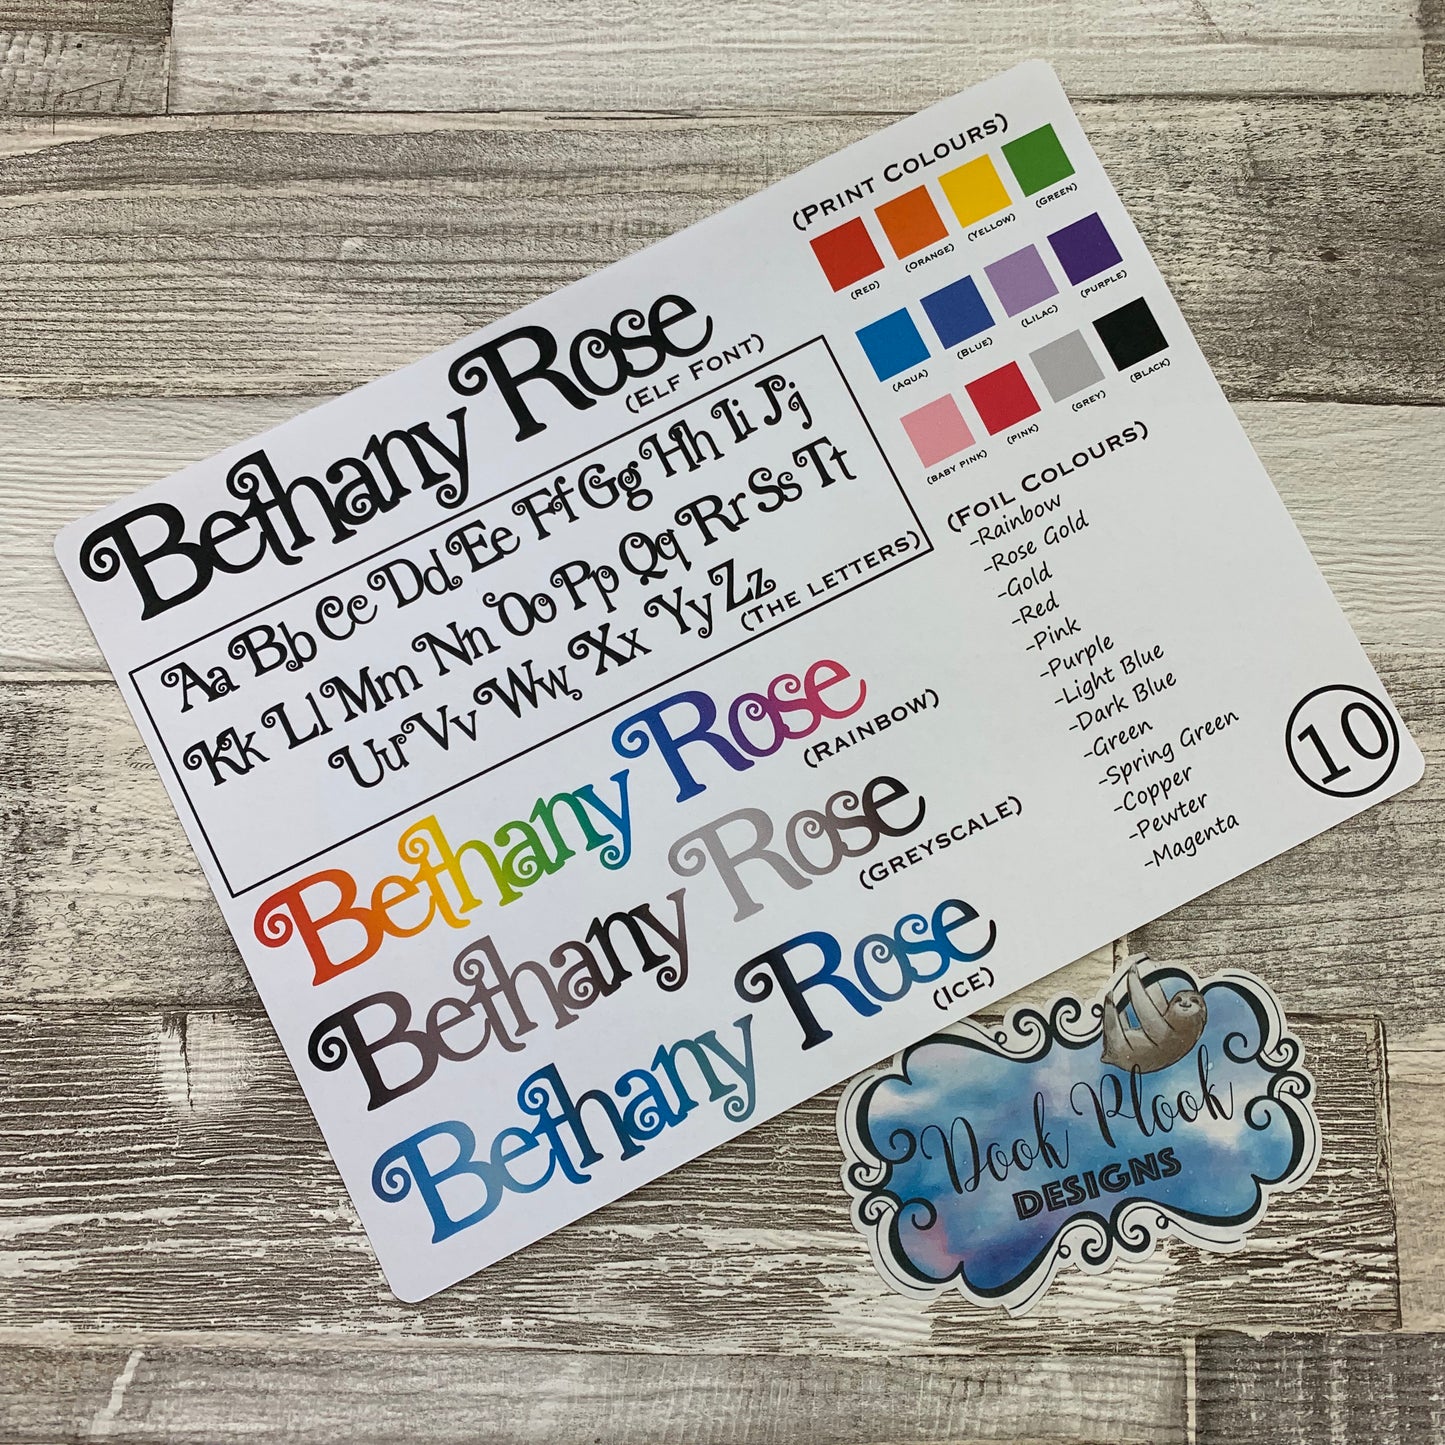 Bethany Rose
(Elf Font)
Aa Bb Cc Dd Ee Ff Gg Hh Ii Jj
Kk Ll Mm Nn Oo Pp Qq Rr Ss Tt
Uu Vv Ww Xx Yy Zz
(The letters)
Bethany Rose
(Rainbow)
Bethany Rose
(Greyscale)
Bethany Rose
(Ice)
(Print Colours)
(Red) (Orange) (Yellow) (Green)
(Aqua) (Blue) (Lilac) (Purple)
(Baby Pink) (Pink) (Grey) (Black)
(Foil Colours)
-Rainbow
-Rose Gold
-Gold
-Red
-Pink
-Purple
-Light Blue
-Dark Blue
-Green
-Spring Green
-Copper
-Pewter
-Magenta
10
Dook Plook
DESIGNS